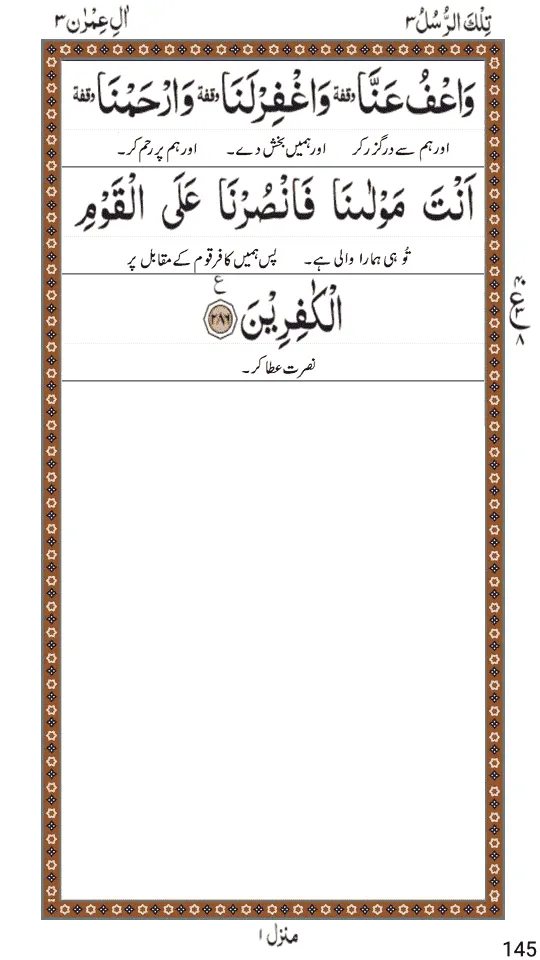 تِلْكَ الرُّسُلُ ۳
اٰلِ عِمْرٰن ۳
وَاعْفُ عَنَّا وقفة وَاغْفِرْلَنَا وقفة وَارْحَمْنَا وقفة
اور ہم سے درگزر کر اور ہمیں بخش دے۔ اور ہم پر رحم کر۔
اَنْتَ مَوْلٰىنَا فَانْصُرْنَا عَلَى الْقَوْمِ
تُو ہی ہمارا والی ہے۔ پس ہمیں کافر قوم کے مقابل پر
الْكٰفِرِيْنَ ۲۸۶ ع
نصرت عطا کر۔
۴۰ ع ۳ ۸
منزل ۱
145